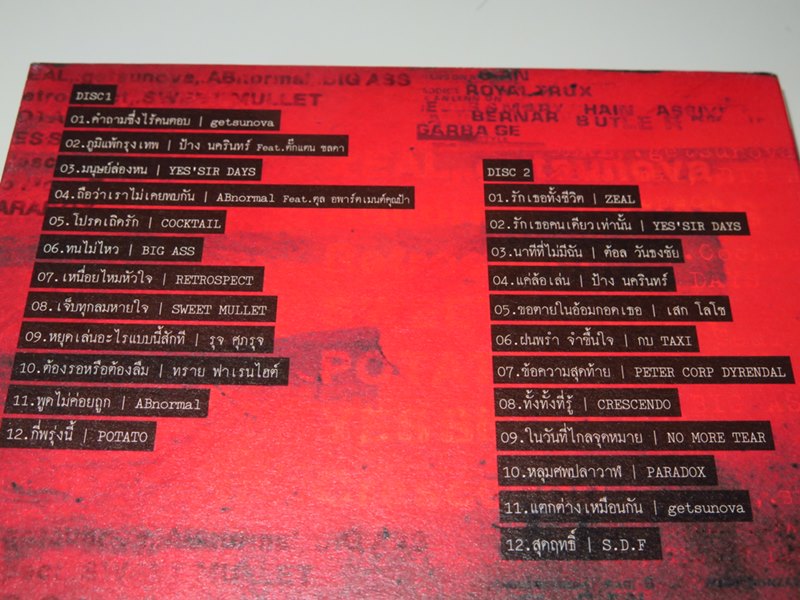 EAL, getsunova, ABnormal, BIG ASS
SWEET MULLET
ROYAL TRUX
HAIN
BERNAR BUTLE
GARBAGE
DISC1
01.คำถามซึ่งไร้คนตอบ | getsunova
02.ภูมิแพ้กรุงเทพ | ป้าง นครินทร์ Feat.ตั๊กแตน ชลดา
03.มนุษย์ล่องหน | YES'SIR DAYS
04.ถือว่าเราไม่เคยพบกัน | ABnormal Feat.ตุล อพาร์ตเมนต์คุณป้า
05.โปรดเถิดรัก | COCKTAIL
06.ทนไม่ไหว | BIG ASS
07.เหนื่อยไหมหัวใจ | RETROSPECT
08.เจ็บทุกลมหายใจ | SWEET MULLET
09.หยุดเล่นอะไรแบบนี้สักที | รุจ ศุภรุจ
10.ต้องรอหรือต้องลืม | ทราย ฟาเรนไฮต์
11.พูดไม่ค่อยถูก | ABnormal
12.กี่พรุ่งนี้ | POTATO
DISC 2
01.รักเธอทั้งชีวิต | ZEAL
02.รักเธอคนเดียวเท่านั้น | YES'SIR DAYS
03.นาทีที่ไม่มีฉัน | ต้อล วันธงชัย
04.แค่ล้อเล่น | ป้าง นครินทร์
05.ขอตายในอ้อมกอดเธอ | เสก โลโซ
06.ฝนพรำ จำขึ้นใจ | กบ TAXI
07.ข้อความสุดท้าย | PETER CORP DYRENDAL
08.ทั้งทั้งที่รู้ | CRESCENDO
09.ในวันที่ไกลจุดหมาย | NO MORE TEAR
10.หลุมศพปลาวาฬ | PARADOX
11.แตกต่างเหมือนกัน | getsunova
12.สุดฤทธิ์ | S.D.F